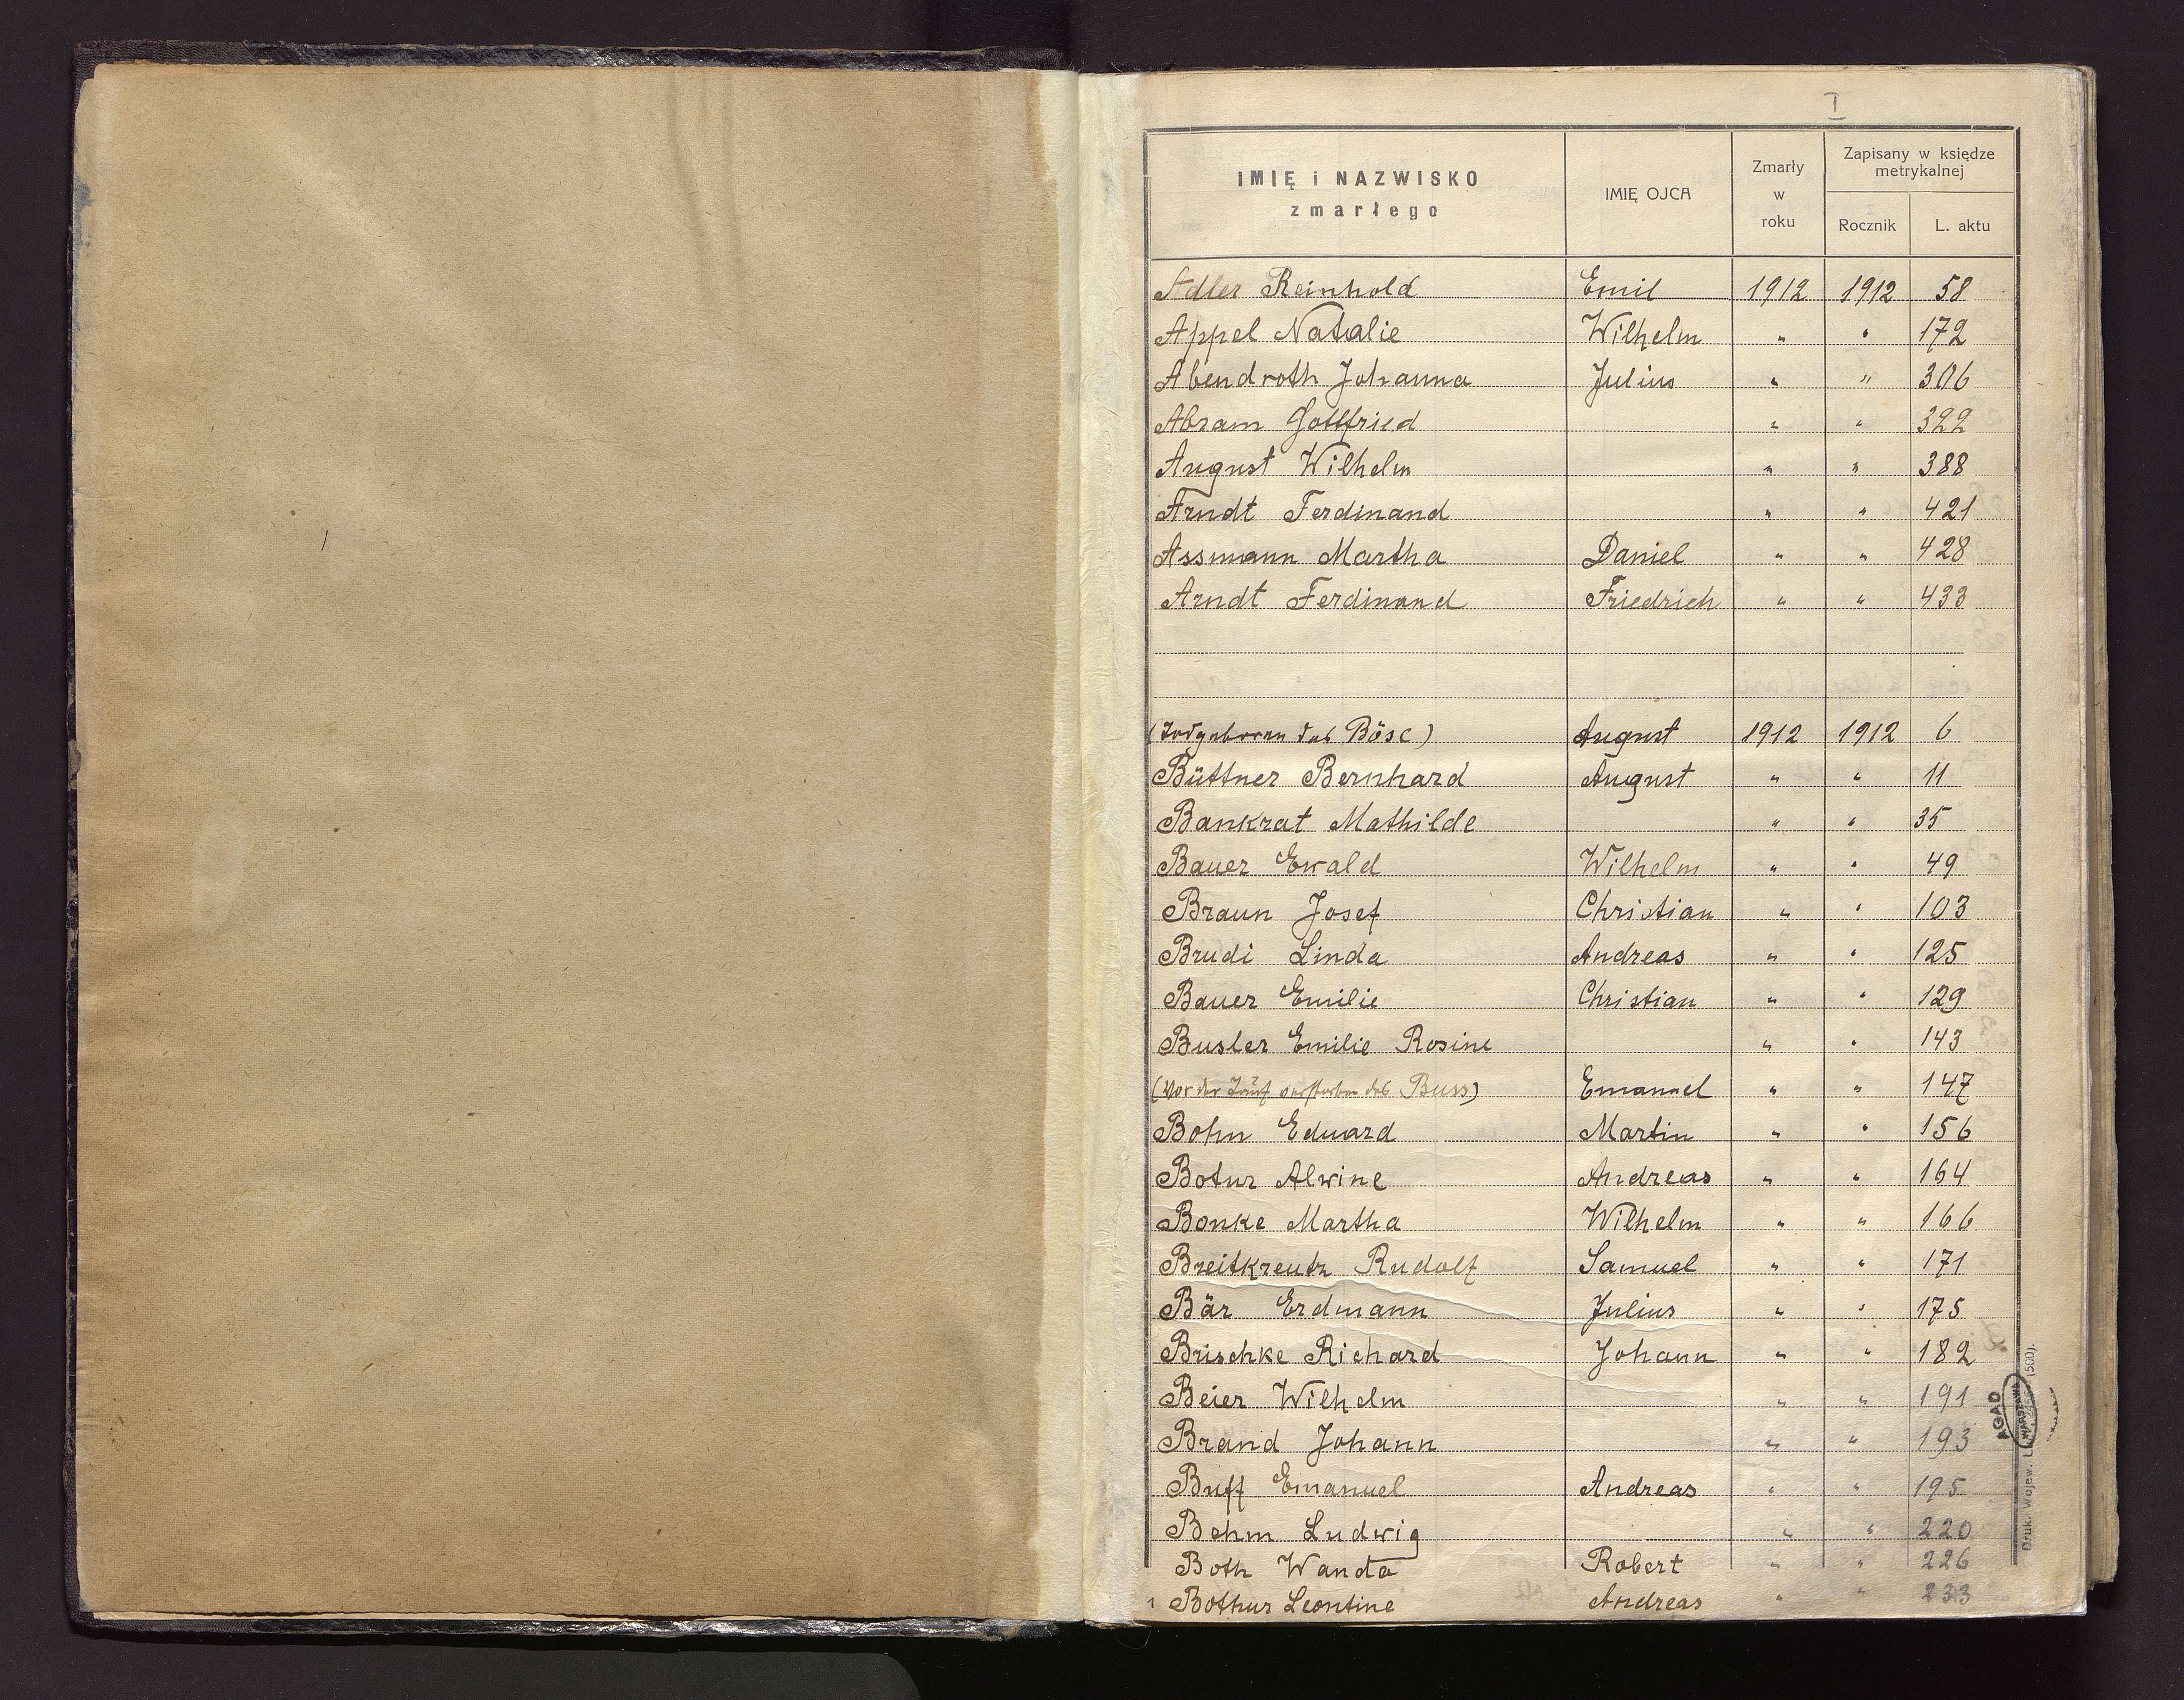 I
IMIĘ i NAZWISKO
zmarłego
IMIĘ OJCA
Zmarły
w
roku
Zapisany w księdze
metrykalnej
Rocznik L. aktu
Adler Reinhold Emil 1912 1912 58
Appel Natalie Wilhelm " " 172
Abendroth Johanna Julius " " 306
Abram Gottfried " " 322
August Wilhelm " " 388
Arndt Ferdinand " " 421
Assmann Martha Daniel " " 428
Arndt Ferdinand Friedrich " " 433
(Todgeboren des Böse) August 1912 1912 6
Büttner Bernhard August " " 11
Bankrat Mathilde " " 35
Bauer Ewald Wilhelm " " 49
Braun Josef Christian " " 103
Brudi Linda Andreas " " 125
Bauer Emilie Christian " " 129
Busler Emilie Rosine " " 143
(Vor der Taufe verstorben des Buss) Emanuel " " 147
Bohn Eduard Martin " " 156
Botur Alwine Andreas " " 164
Bonke Martha Wilhelm " " 166
Breitkreutz Rudolf Samuel " " 171
Bär Erdmann Julius " " 175
Brischke Richard Johann " " 182
Beier Wilhelm " " 191
Brand Johann " " 193
Buff Emanuel Andreas " " 195
Behm Ludwig " " 220
Both Wanda Robert " " 226
Bothur Leontine Andreas " " 233
AGAD
WARSZAWA
Druk. Wojew. (500).